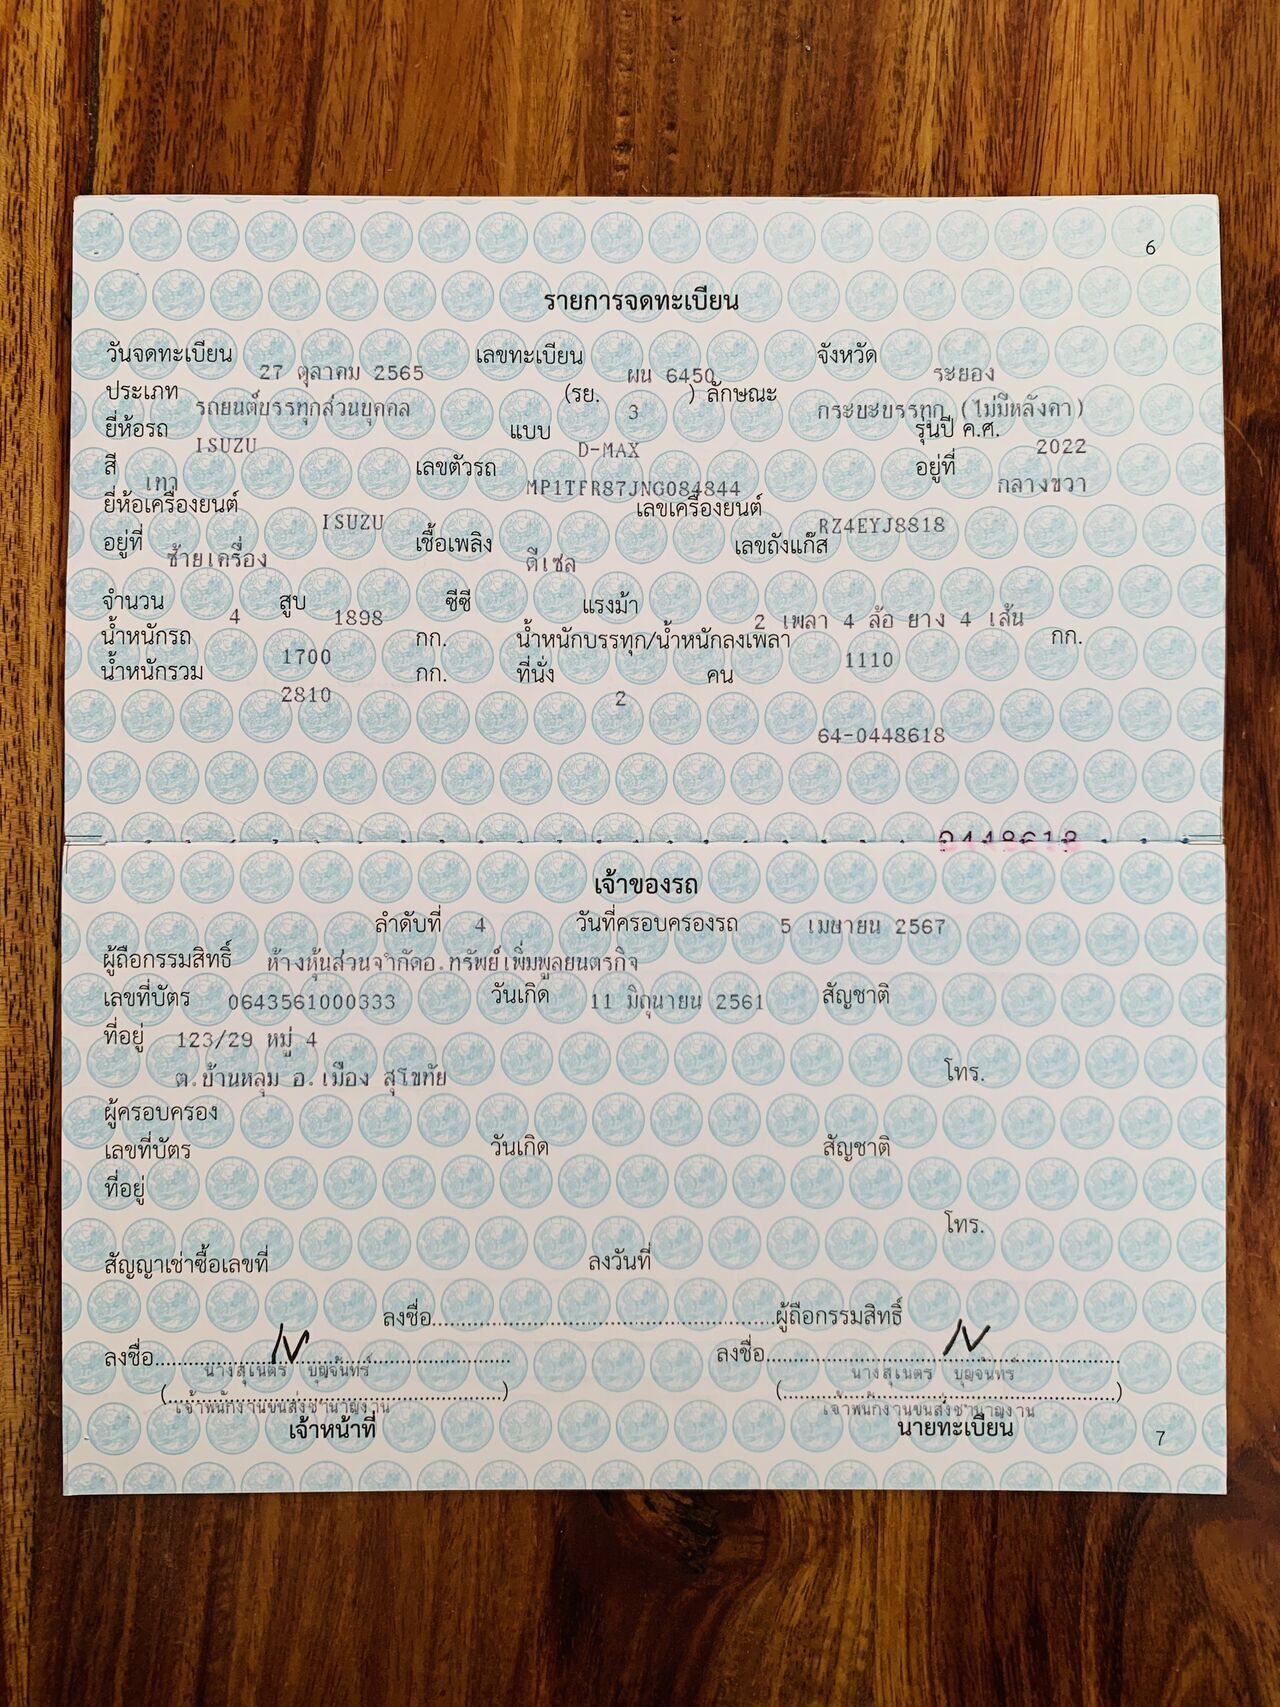 6
รายการจดทะเบียน
วันจดทะเบียน 27 ตุลาคม 2565 เลขทะเบียน ผน 6450 จังหวัด ระยอง
ประเภท รถยนต์บรรทุกส่วนบุคคล (รย. 3 ) ลักษณะ กระบะบรรทุก (ไม่มีหลังคา)
ยี่ห้อรถ ISUZU แบบ D-MAX รุ่นปี ค.ศ. 2022
สี เทา เลขตัวรถ MP1TFR87JNG084844 อยู่ที่ กลางขวา
ยี่ห้อเครื่องยนต์ ISUZU เลขเครื่องยนต์ RZ4EYJ8818
อยู่ที่ ซ้ายเครื่อง เชื้อเพลิง ดีเซล เลขถังแก๊ส
จำนวน 4 สูบ 1898 ซีซี แรงม้า 2 เพลา 4 ล้อ ยาง 4 เส้น
น้ำหนักรถ 1700 กก. น้ำหนักบรรทุก/น้ำหนักลงเพลา 1110 กก.
น้ำหนักรวม 2810 กก. ที่นั่ง 2 คน
64-0448618
0448618
เจ้าของรถ
ลำดับที่ 4 วันที่ครอบครองรถ 5 เมษายน 2567
ผู้ถือกรรมสิทธิ์ ห้างหุ้นส่วนจำกัดอ.ทรัพย์เพิ่มพูลยนตรกิจ
เลขที่บัตร 0643561000333 วันเกิด 11 มิถุนายน 2561 สัญชาติ
ที่อยู่ 123/29 หมู่ 4
ต.บ้านหลุม อ.เมือง สุโขทัย โทร.
ผู้ครอบครอง
เลขที่บัตร วันเกิด สัญชาติ
ที่อยู่
โทร.
สัญญาเช่าซื้อเลขที่ ลงวันที่
ลงชื่อ..............................ผู้ถือกรรมสิทธิ์
ลงชื่อ.............................. ลงชื่อ..............................
(นางสุเนตร บุญจันทร์) (นางสุเนตร บุญจันทร์)
เจ้าพนักงานขนส่งชำนาญงาน เจ้าพนักงานขนส่งชำนาญงาน
เจ้าหน้าที่ นายทะเบียน
7